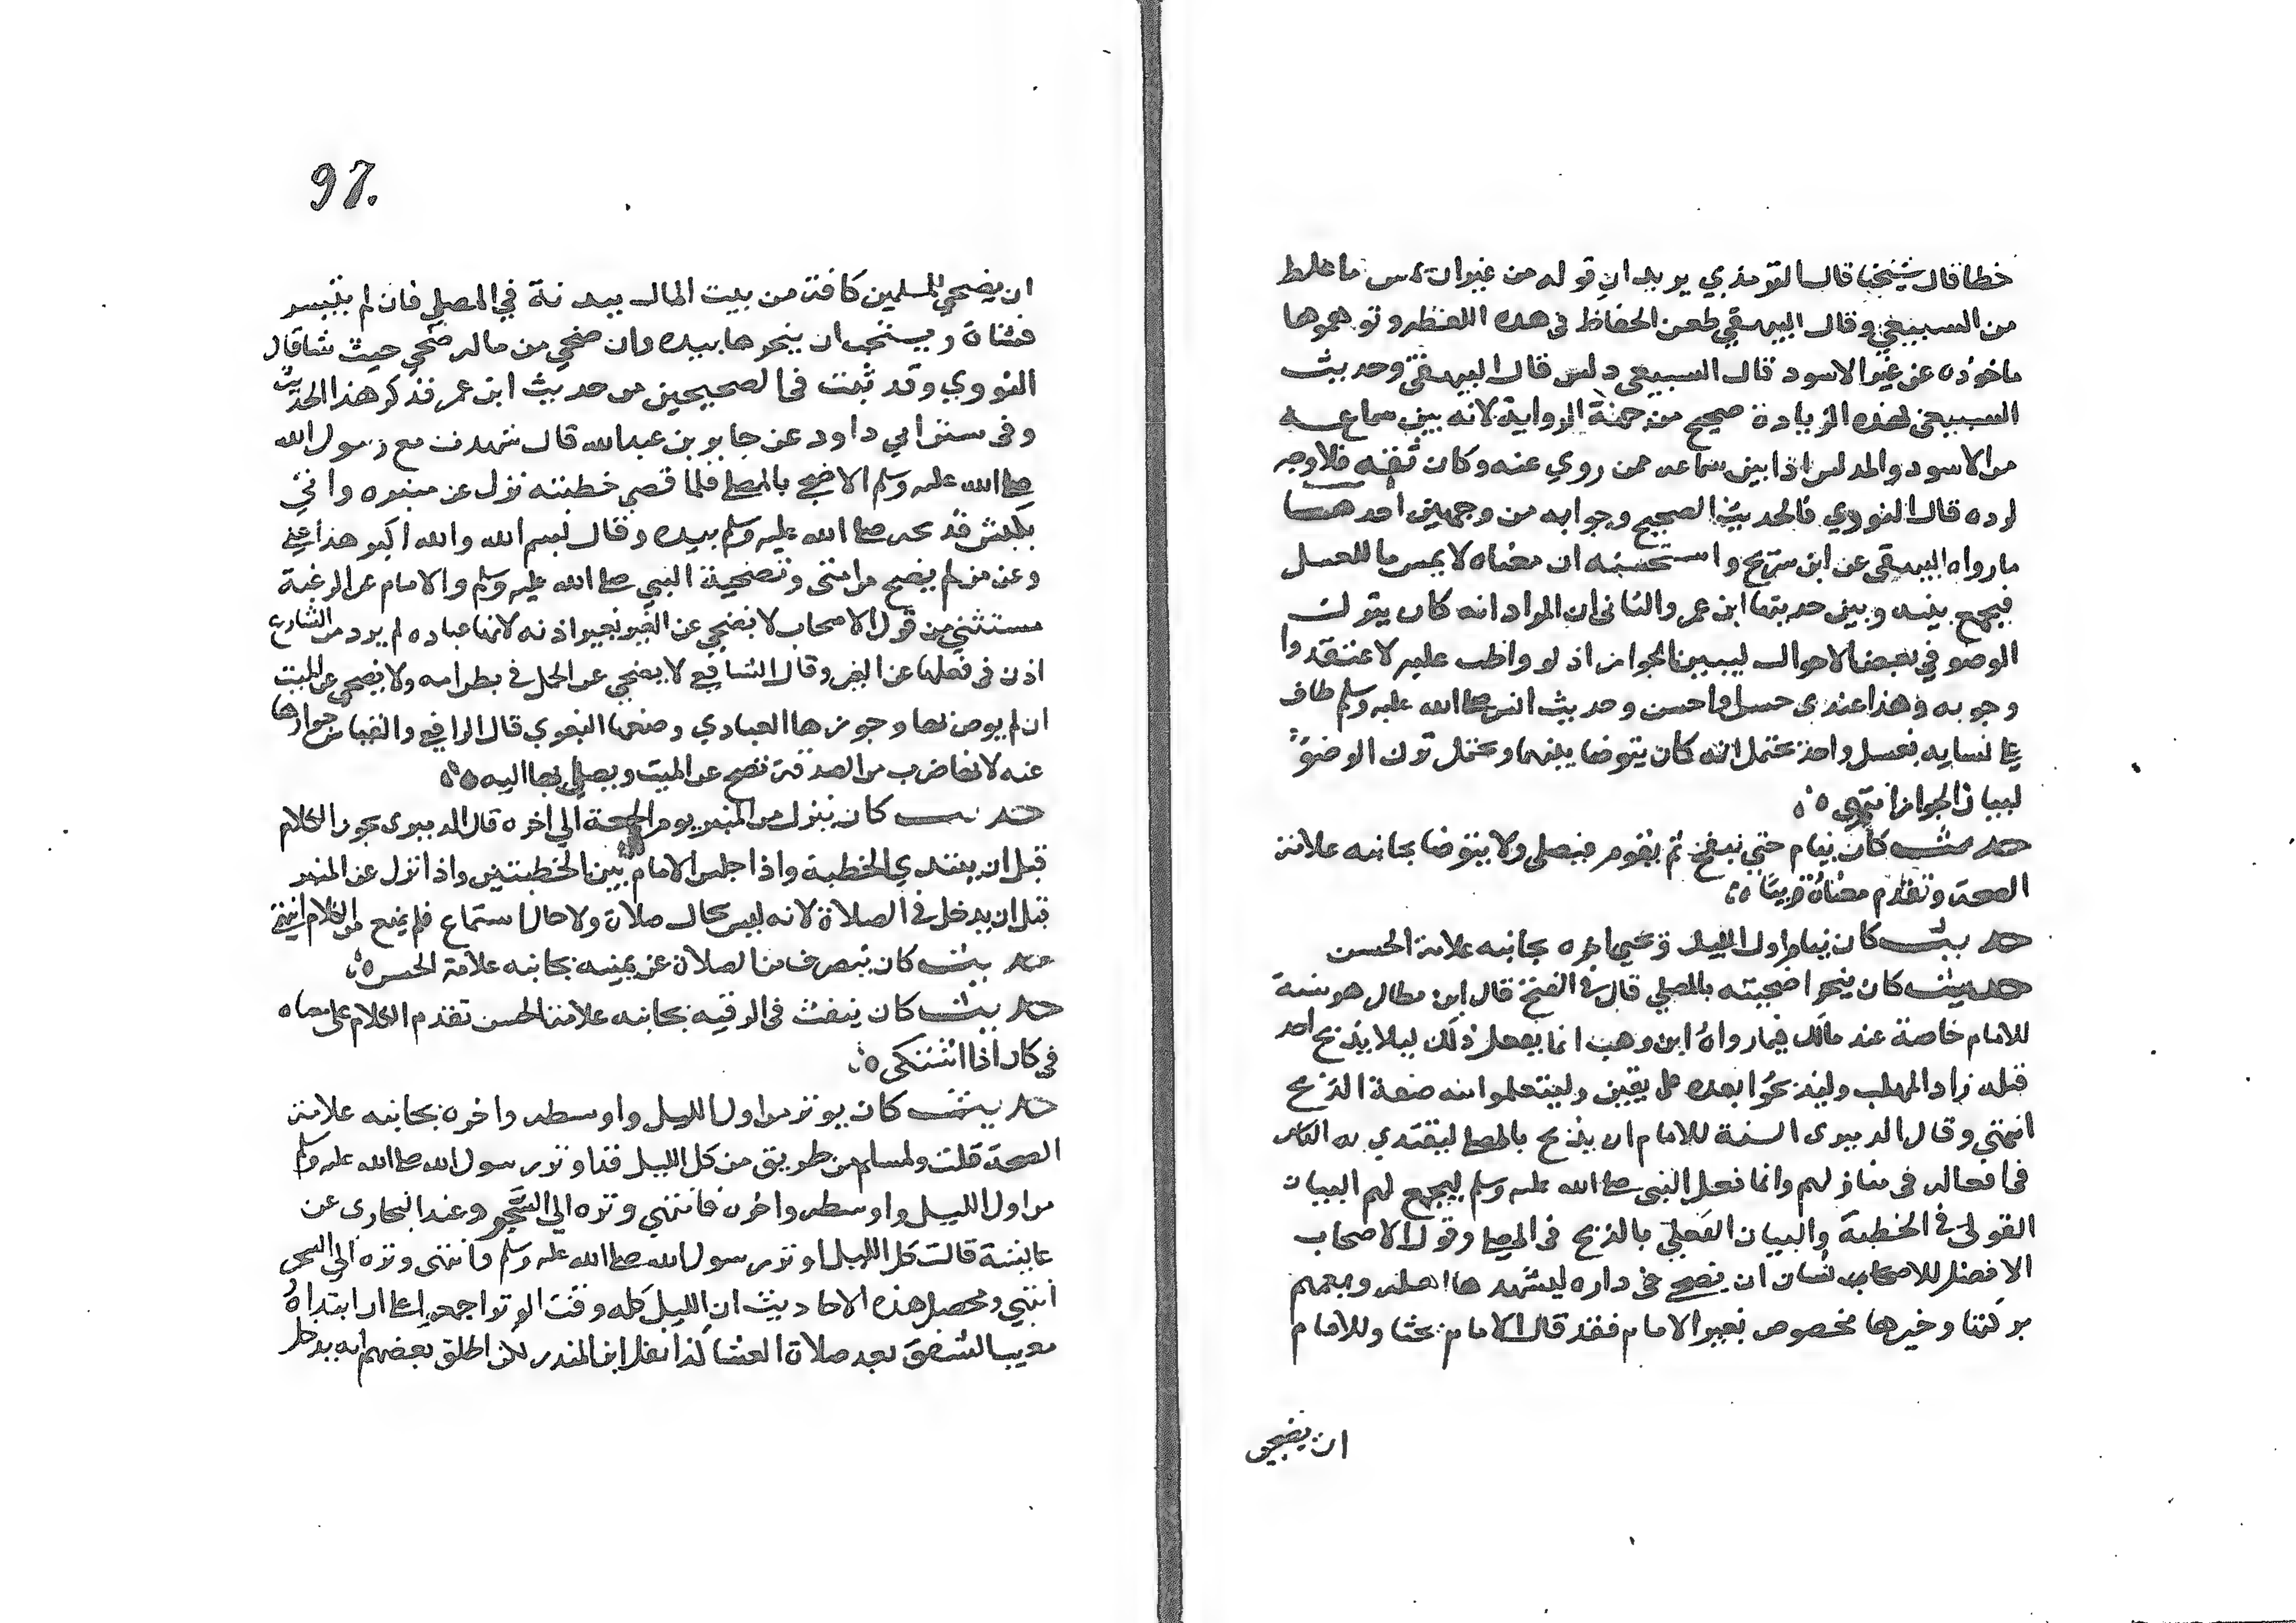 خطا قال شيخنا قال الترمذي يريد ان قوله من غير ان يمس ما غلط
من السبيعي وقال البيهقي طعن الحفاظ في هذه اللفظه وتوهموها
ماخوذه عن غير الاسود قال السبيعي دلس قال البيهقي وحديث
السبيعي لهذه الزيادة صحيح من جهة الرواية لانه بين سماعه
من الاسود والمدلس اذا بين سماعه ممن روي عنه وكان ثقة فلا وجه
لرده قال النووي فالحديث الصحيح وجوابه من وجهين احدهما
ما رواه البيهقي عن ابن سريج واستحسنه ان معناه لا يمس ما للغسل
فيجمع بينه وبين حديثها ابن عمر والثاني ان المراد انه كان يترك
الوضو في بعض الاحوال ليبين الجواز اذ لو واظب عليه لاعتقدوا
وجوبه وهذا عندي حسن او احسن وحديث انس صلى الله عليه وسلم طاف
على نسايه بغسل واحد يحتمل انه كان يتوضا بينهما ويحتمل ترك الوضوء
لبيان الجواز انتهى
حديث كان ينام حتى ينفخ ثم يقوم فيصلي ولا يتوضا بجانبه علامة
الصحة وتقدم معناه قريبًا
حديث كان ينام اول الليل ويحيي اخره بجانبه علامة الحسن
حديث كان ينحر اضحيته بالمصلي قال في الفتح قال ابن بطال هو سنة
للامام خاصة عند مالك فيما رواه ابن وهب انما يفعل ذلك ليلا يذبح احد
قبله زاد المهلب وليذبحوا بعده على يقين وليتعلموا منه صفة الذبح
انتهى وقال الدميري السنة للامام ان يذبح بالمصلى ليقتدي به الناس
في افعاله في منازلهم وانما فعل النبي صلى الله عليه وسلم ليجمع لهم البيان
القولي في الخطبة والبيان الفعلي بالذبح في المصلى وقول الاصحاب
الافضل للانسان ان يضحي في داره ليشهدها اهله ويعمهم
بركتها وخيرها مخصوص بغير الامام فقد قال الامام بحثا وللامام
ان يضحي
97.
ان يضحي للمسلمين كافة من بيت المال ببدنة في المصلي فان لم يتيسر
فشاة ويستحب ان ينحرها بيده وان ضحي من ماله ضحي حيث شا قال
النووي وقد ثبت في الصحيحين من حديث ابن عمر فذكر هذا الحديث
وفي سنن ابي داود عن جابر بن عبد الله قال شهدت مع رسول الله
صلى الله عليه وسلم الاضحى بالمصلى فلما قضى خطبته نزل عن منبره واتي
بكبش فذبحه صلى الله عليه وسلم بيده وقال بسم الله والله اكبر هذا عني
وعن من لم يضح من امتي وتضحية النبي صلى الله عليه وسلم والامام عن الرعية
مستثني من قول الاصحاب لا يضحي عن الغير بغير اذنه لانها عباده لم يرد من الشارع
اذن في فعلها عن الغير وقال الشافعي لا يضحي عن الحمل في بطن امه ولا يضحي عن الميت
ان لم يوص بها وجوزها العبادي ومنعها البغوي قال الرافعي والقياس جوازها
عنه لانها ضرب من الصدقة تصح عن الميت ويصل بها اليه
حديث كان ينزل من المنبر يوم الجمعة الي اخره قال الدميري يجوز الكلام
قبل ان يبتدي الخطبة واذا جلس الامام بين الخطبتين واذا نزل عن المنبر
قبل ان يدخل في الصلاة لانه ليس بحال صلاة ولا حال استماع فلم يمنع من الكلام انتهى
حديث كان ينصرف من الصلاة عن يمينه بجانبه علامة الحسن
حديث كان ينفث في الرقيه بجانبه علامة الحسن تقدم الكلام على معناه
في كان اذا اشتكى
حديث كان يوتر من اول الليل واوسطه واخره بجانبه علامة
الصحة قلت ولمسلم من طريق من كل الليل قد اوتر رسول الله صلى الله عليه وسلم
من اول الليل واوسطه واخره فانتهي وتره الي السحر وعند البخاري عن
عايشة قالت كل الليل اوتر رسول الله صلى الله عليه وسلم وانتهى وتره الى السحر
انتهي ومحصل هذه الاحاديث ان الليل كله وقت الوتر اجمعوا على ان ابتداه
مغيب الشفق بعد صلاة العشا كذا نقل ابن المنذر لكن اطلق بعضهم انه يدخل